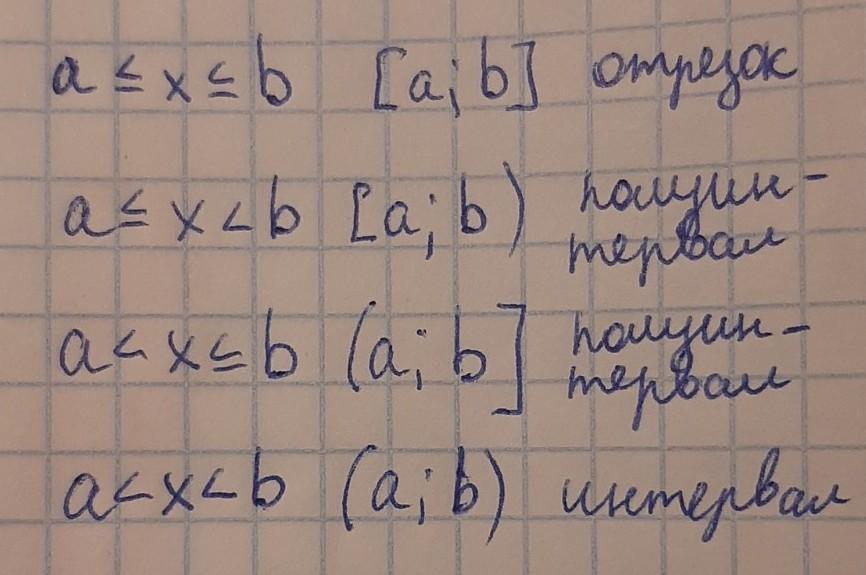 a ≤ x ≤ b [a; b] отрезок
a ≤ x < b [a; b) полуин-
тервал
a < x ≤ b (a; b] полуин-
тервал
a < x < b (a; b) интервал